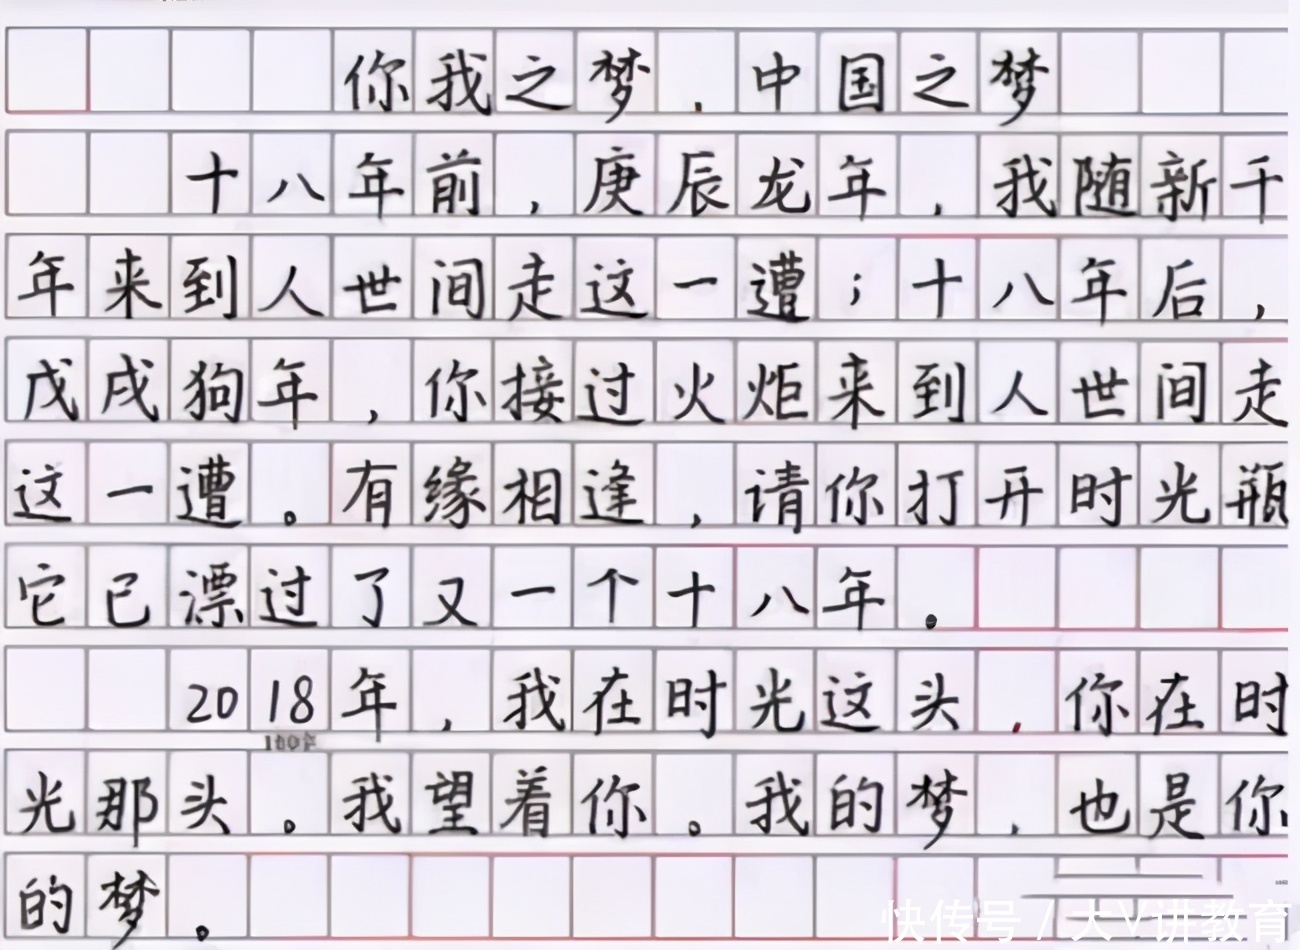 你我之梦，中国之梦
十八年前，庚辰龙年，我随新千
年来到人世间走这一遭；十八年后，
戊戌狗年，你接过火炬来到人世间走
这一遭。有缘相逢，请你打开时光瓶
它已漂过了又一个十八年。
2018年，我在时光这头，你在时
100字
光那头。我望着你。我的梦，也是你
的梦。
快传号 / 大V讲教育